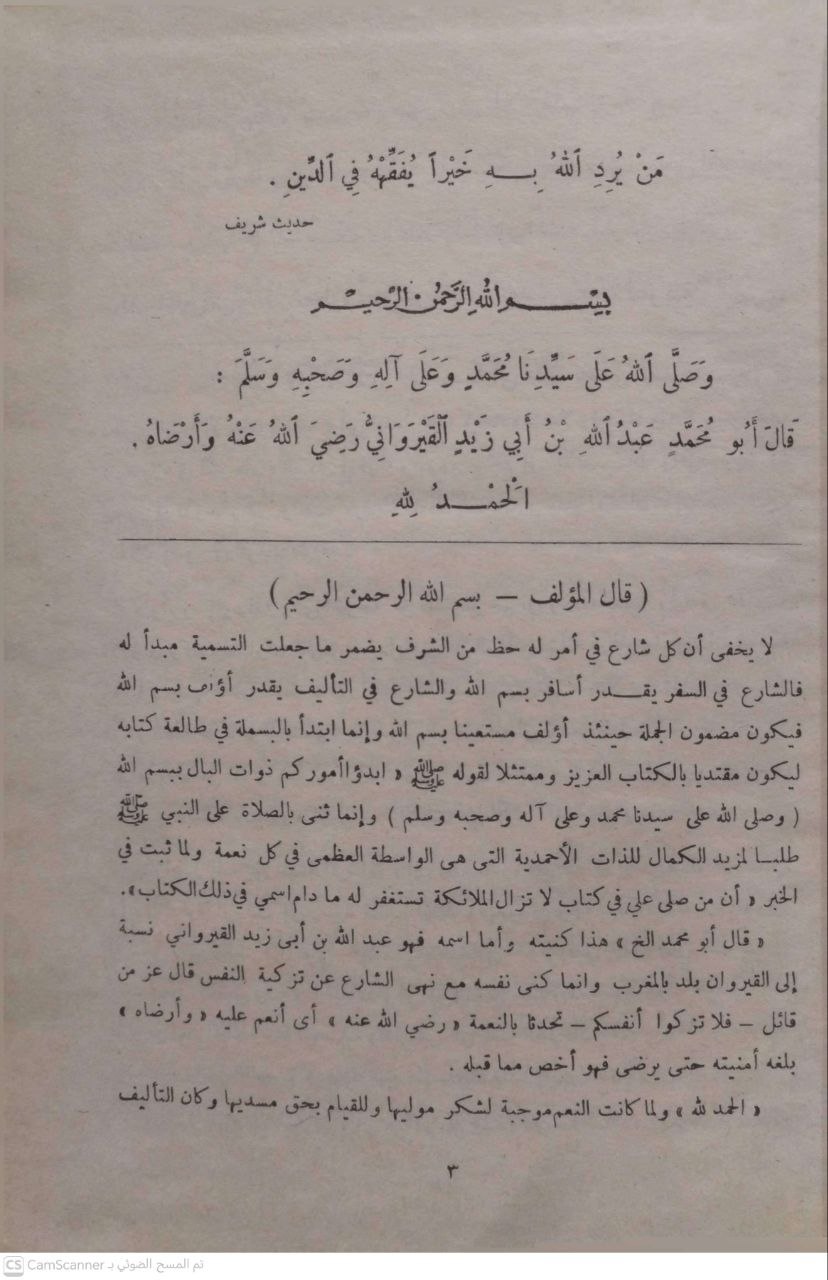 مَنْ يُرِدِ ٱللهُ بِــهِ خَيْراً يُفَقِّهْهُ فِي ٱلدِّينِ .
حديث شريف
بِسْمِ اللهِ الرَّحْمٰنِ الرَّحِيمِ
وَصَلَّى ٱللهُ عَلَى سَيِّدِنَا مُحَمَّدٍ وَعَلَى آلِهِ وَصَحْبِهِ وَسَلَّمَ :
قَالَ أَبُو مُحَمَّدٍ عَبْدُ اللهِ بْنُ أَبِي زَيْدٍ ٱلْقَيْرَوَانِيُّ رَضِيَ ٱللهُ عَنْهُ وَأَرْضَاهُ .
اَلْحَمْــدُ لِلهِ
( قال المؤلف — بسم الله الرحمن الرحيم )
لا يخفى أن كل شارع في أمر له حظ من الشرف يضمر ما جعلت التسمية مبدأ له
فالشارع في السفر يقــدر أسافر بسم الله والشارع في التأليف يقدر أؤلف بسم الله
فيكون مضمون الجملة حينئذ أؤلف مستعينا بسم الله وإنما ابتدأ بالبسملة في طالعة كتابه
ليكون مقتديا بالكتاب العزيز وممتثلا لقوله ﷺ « ابدؤا أموركم ذوات البال ببسم الله
( وصلى الله على سيدنا محمد وعلى آله وصحبه وسلم ) وإنما ثنى بالصلاة على النبي ﷺ
طلبــا لمزيد الكمال للذات الأحمدية التى هى الواسطة العظمى في كل نعمة ولما ثبت في
الخبر « أن من صلى علي في كتاب لا تزال الملائكة تستغفر له ما دام اسمي في ذلك الكتاب».
« قال أبو محمد الخ » هذا كنيته وأما اسمه فهو عبد الله بن أبى زيد القيرواني نسبة
إلى القيروان بلد بالمغرب وانما كنى نفسه مع نهى الشارع عن تزكية النفس قال عز من
قائل – فلا تزكوا أنفسكم – تحدثا بالنعمة « رضي الله عنه » أى أنعم عليه « وأرضاه »
بلغه أمنيته حتى يرضى فهو أخص مما قبله .
« الحمد لله » ولما كانت النعم موجبة لشكر موليها وللقيام بحق مسديها وكان التأليف
٣
CS CamScanner تم المسح الضوئي بـ